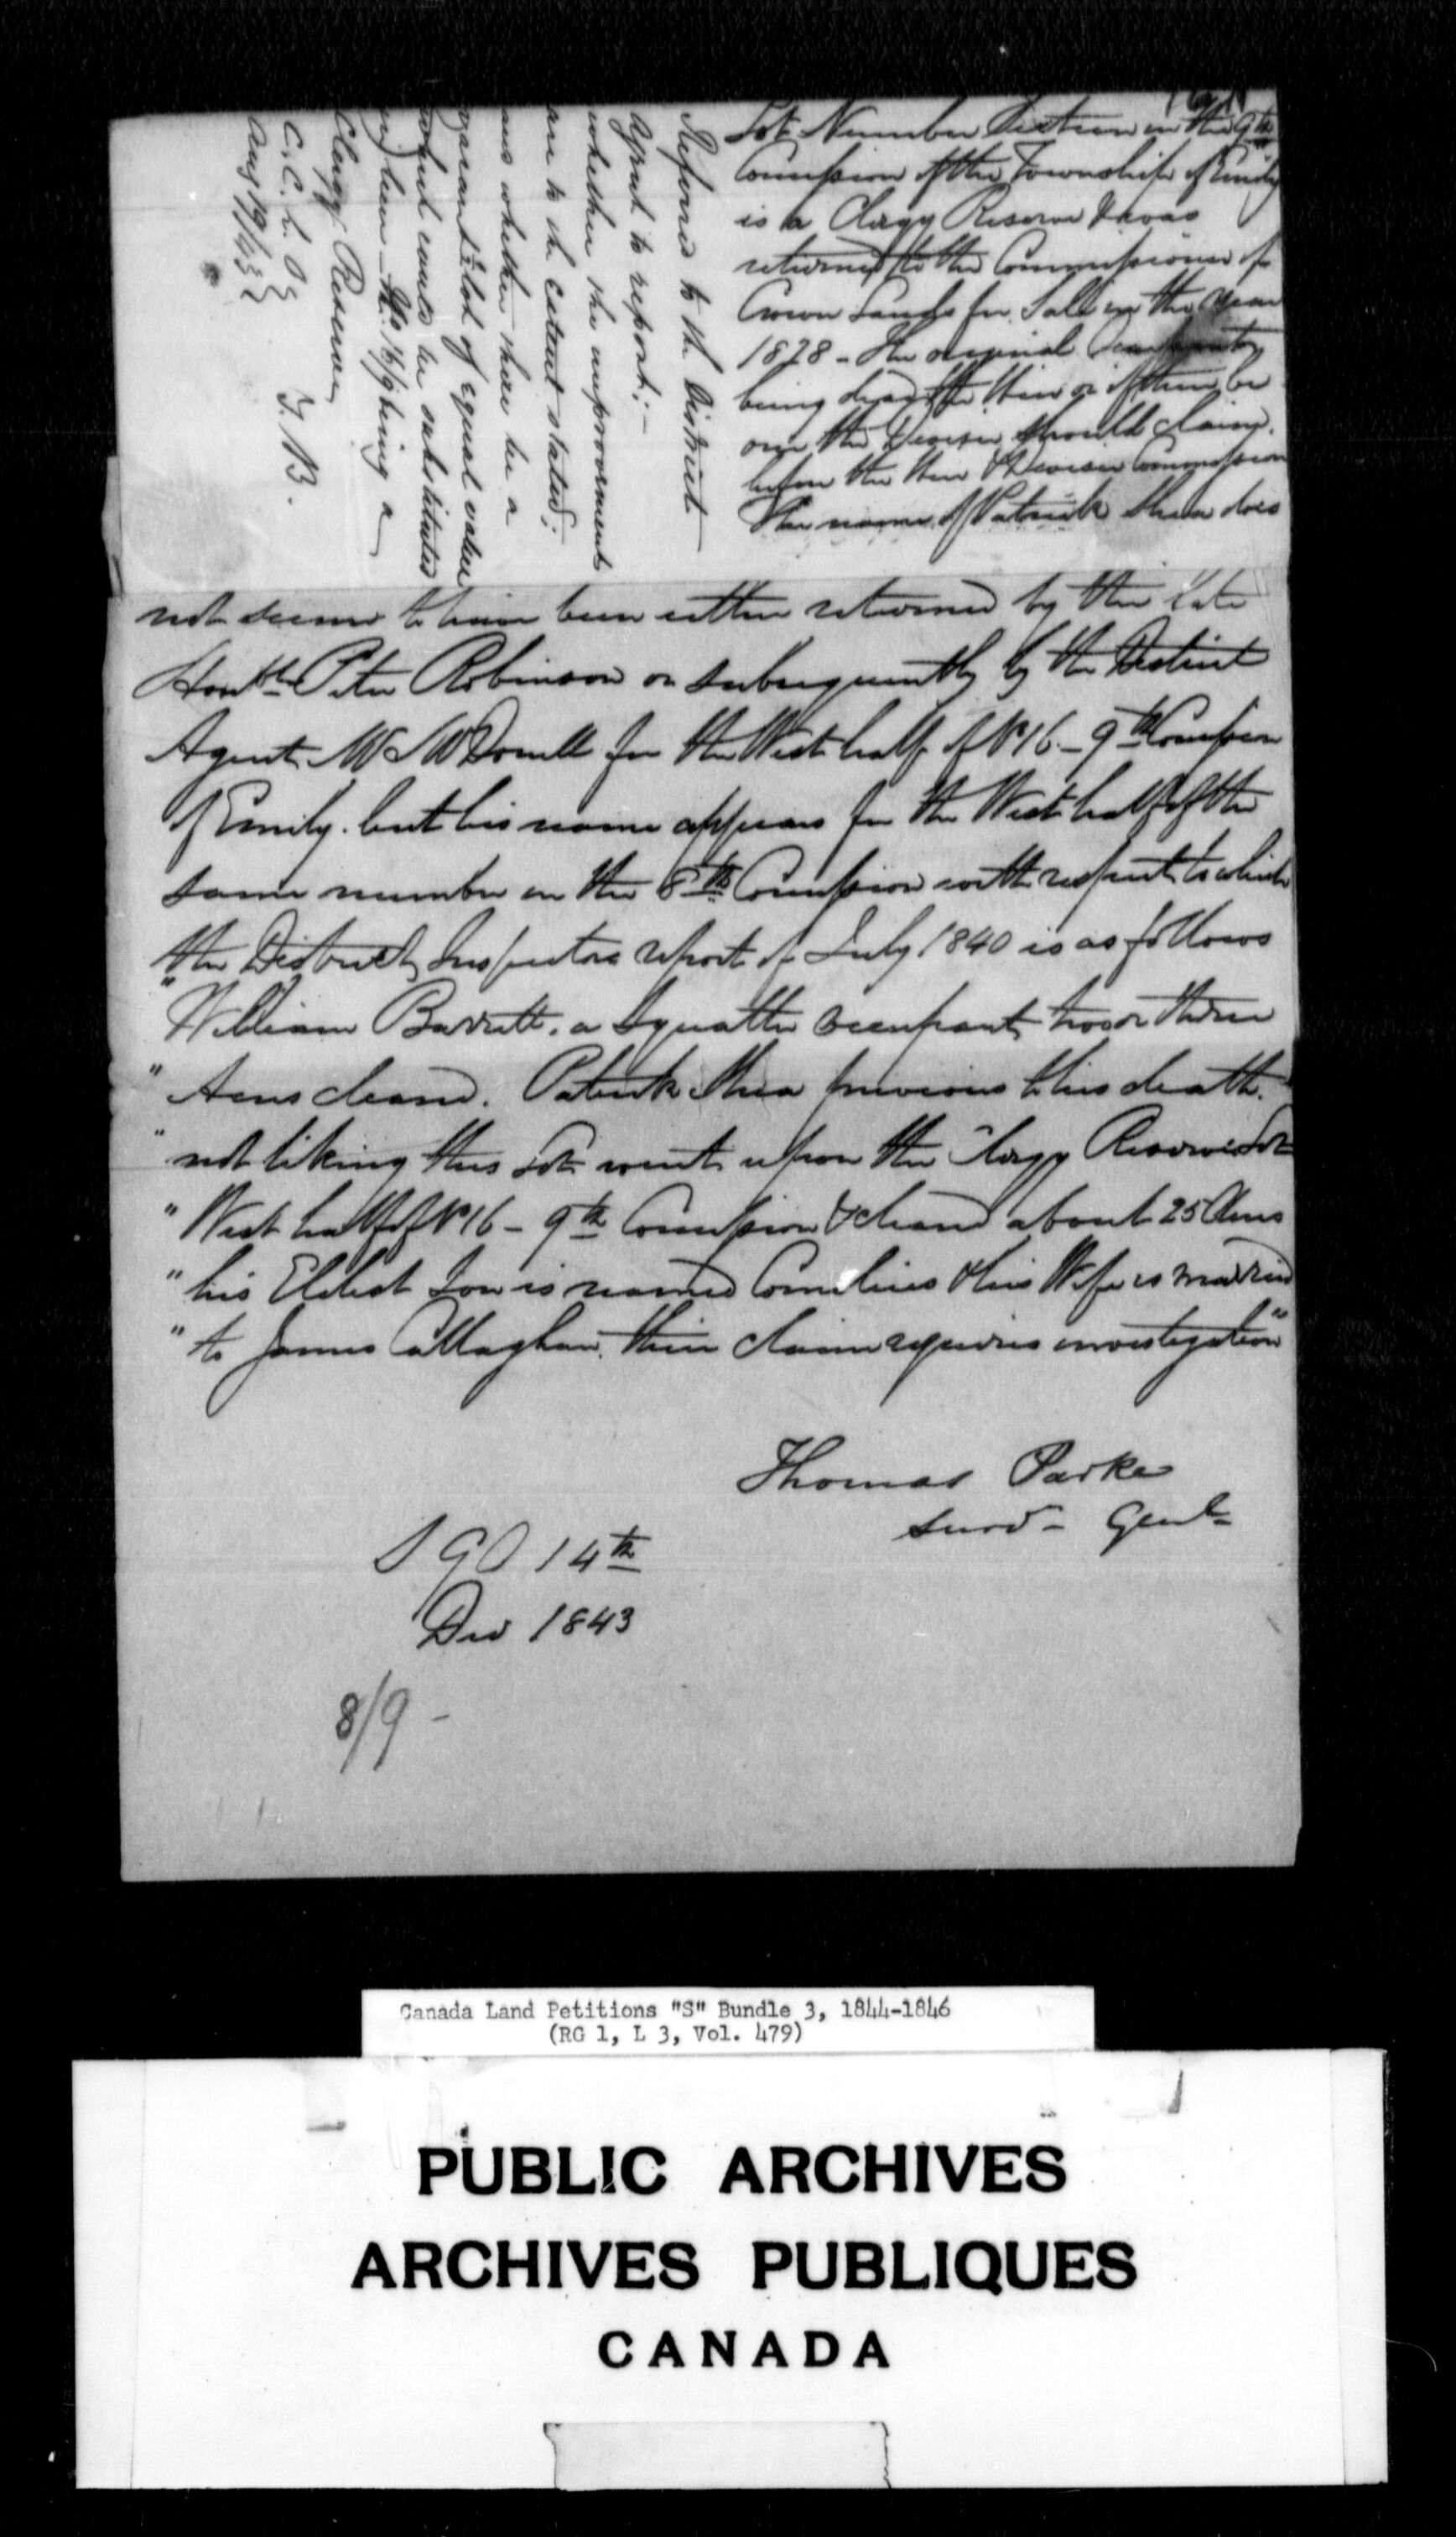 Lot Number Sixteen in the 9th
Concession of the Township of Emily
is a Clergy Reserve & was
returned to the Commissioner of
Crown Lands for Sale in the Year
1828 - The original
being dead the Heir or if there be
one the Devisee should claim
before the Heir & Devisee Commission
The name of Patrick Shea does
not seem to have been either returned by the late
Honble Peter Robinson or subsequently by the District
Agent Mr McDonell for the West half of No 16 - 9th Concession
of Emily. but his name appears for the West half of the
same number in the 8th Concession with respect to which
the District Inspectors report of July 1840 is as follows
"William Barrett. a Squatter occupant two or three
" Acres cleared. Patrick Shea previous to his death.
" not liking this Lot went upon the Clergy Reserve Lot
" West half of No 16 - 9th Concession & cleared about 25 Acres
" his Eldest Son is named Cornelius & his Wife is married
" to James Callaghan. their claim requires investigation"
Thomas Parke
Surv- Genl
S G O 14th
Dec 1843
8/9 -
Referred to the District
Agent to report:-
whether the improvements
are to the extent stated;
and whether there be a
lot of equal value
which could be substituted
in lieu - No 16/9 being a
Clergy Reserve
T. B.
C. C. L. O
Aug 19/43
Canada Land Petitions "S" Bundle 3, 1844-1846
(RG 1, L 3, Vol. 479)
PUBLIC ARCHIVES
ARCHIVES PUBLIQUES
CANADA